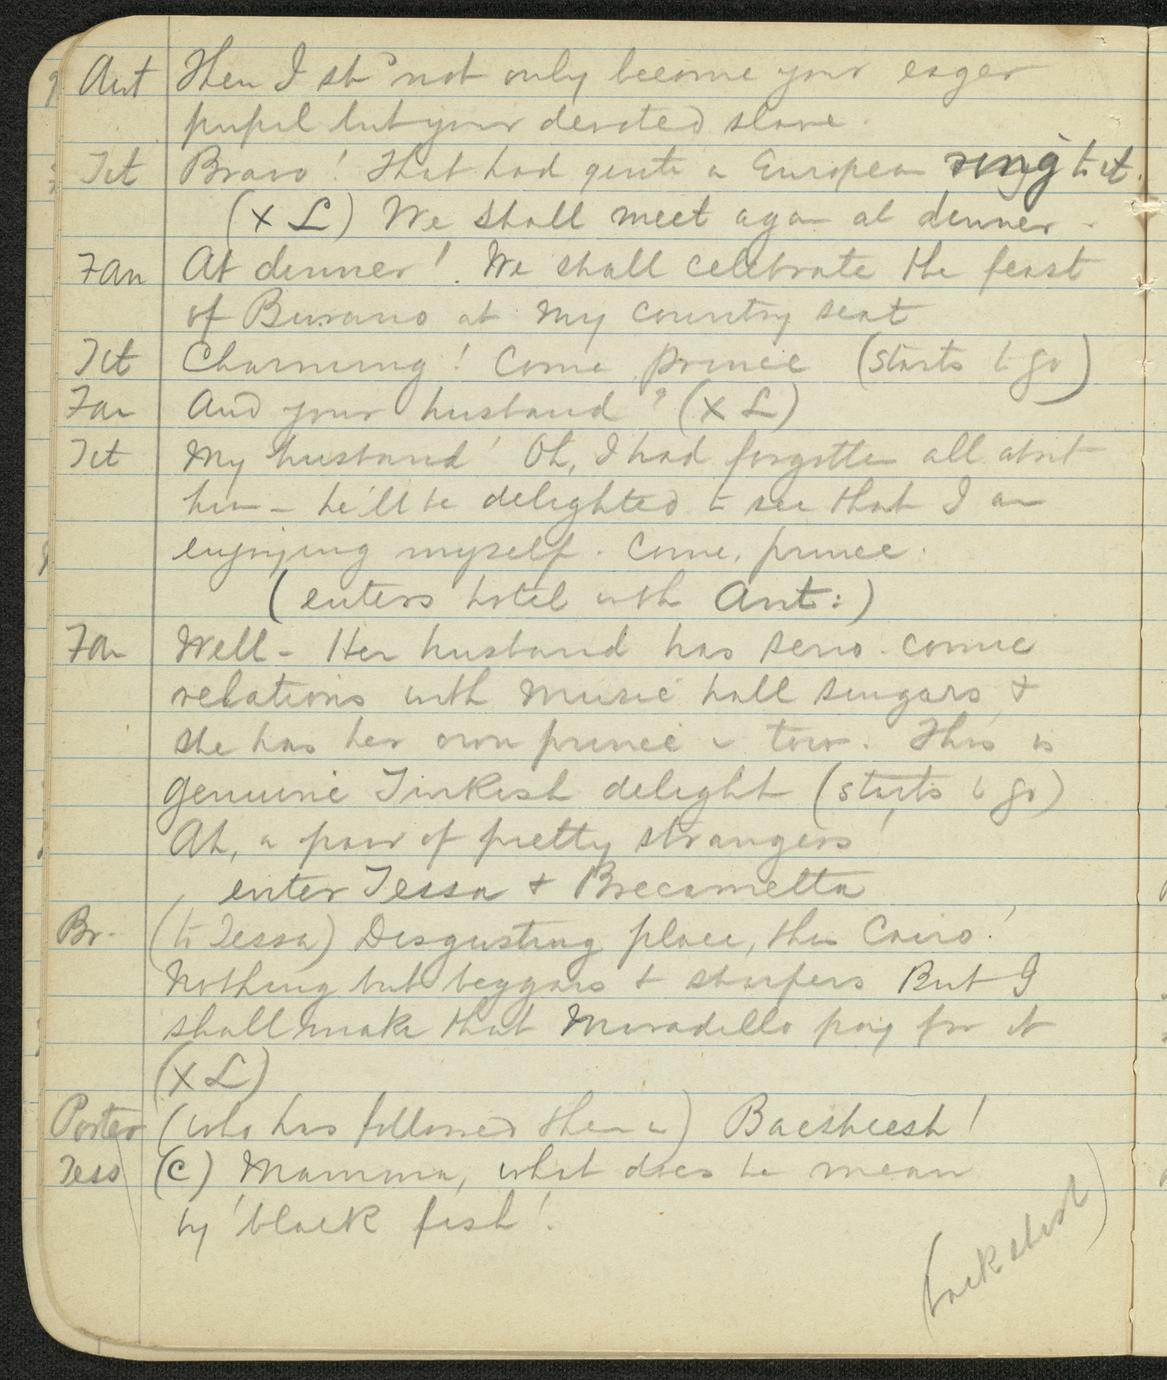 Ant Then I shd not only become your eager
pupil but your devoted slave.
Tit Bravo! That had quite a European ring to it.
(X L) We shall meet again at dinner.
Fan At dinner! We shall celebrate the feast
of Burano at my country seat
Tit Charming! Come prince (starts to go)
Fan And your husband? (X L)
Tit My husband! Oh, I had forgotten all about
him – he'll be delighted to see that I am
enjoying myself. Come, prince.
(enters hotel with Ant:)
Fan Well – Her husband has serio-comic
relations with music hall singars &
she has her own prince in tow. This is
genuine Turkish delight (starts to go)
Ah, a pair of pretty strangers!
enter Tessa & Brecametta
Br. (to Tessa) Disgusting place, this Cairo!
Nothing but beggars & sharpers But I
shall make that Moradillo pay for it
(X L)
Porter (who has followed them in) Bacsheesh!
Tess (C) Mamma, what does he mean
by 'black fish'.
(backshish)